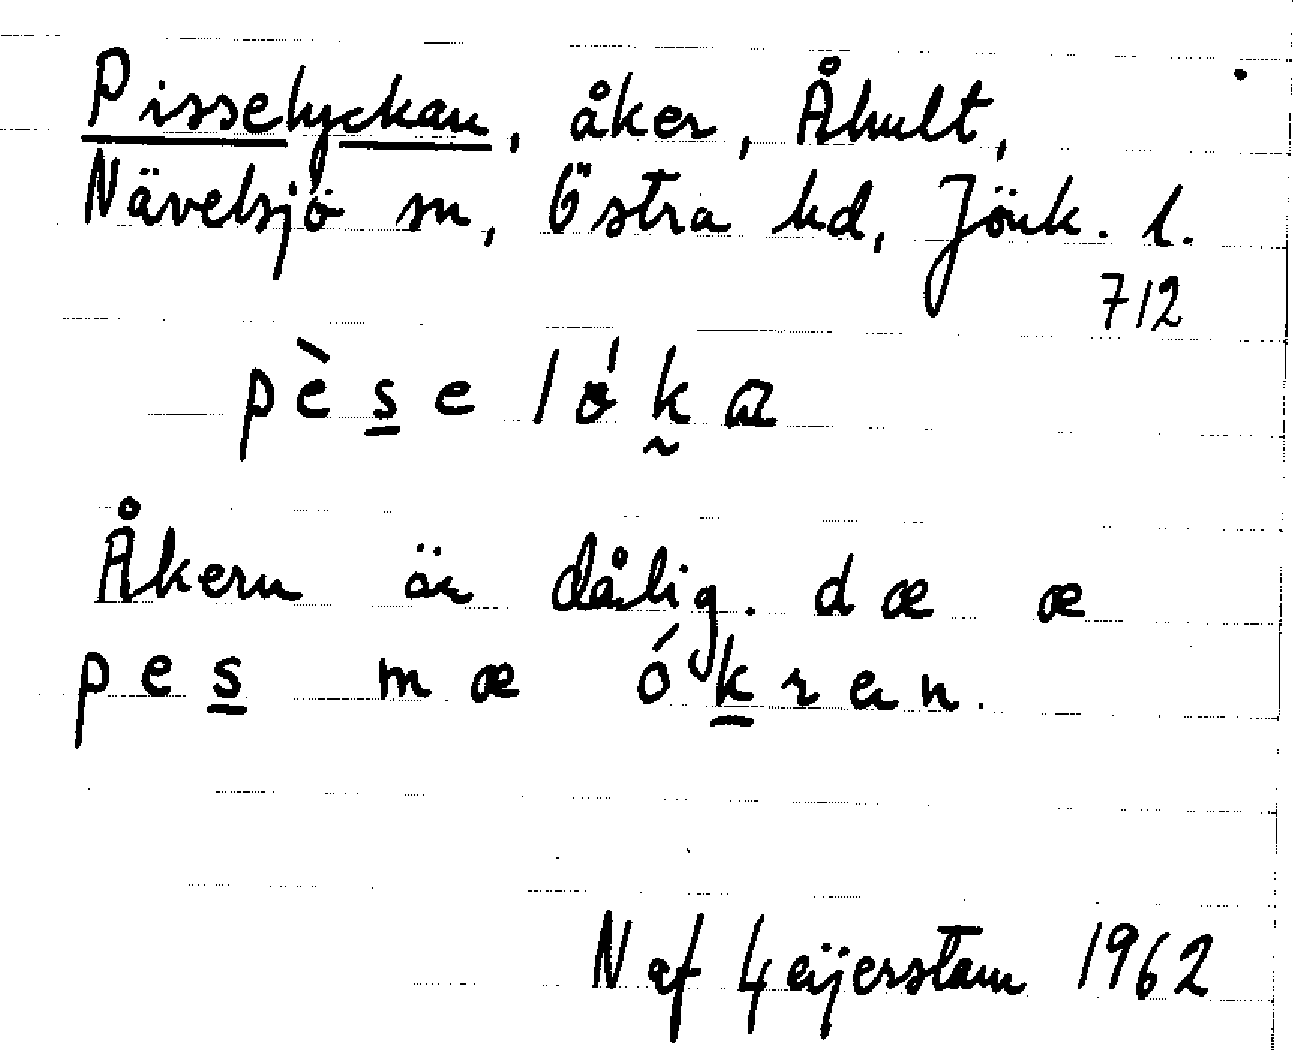 Pisselyckan, åker, Åhult,
Nävelsjö sn, Östra hd, Jönk. l.
712
pèse lókɑ
Åkern är dålig. dæ æ
pes mæ ókren.
N af Geijerstam 1962